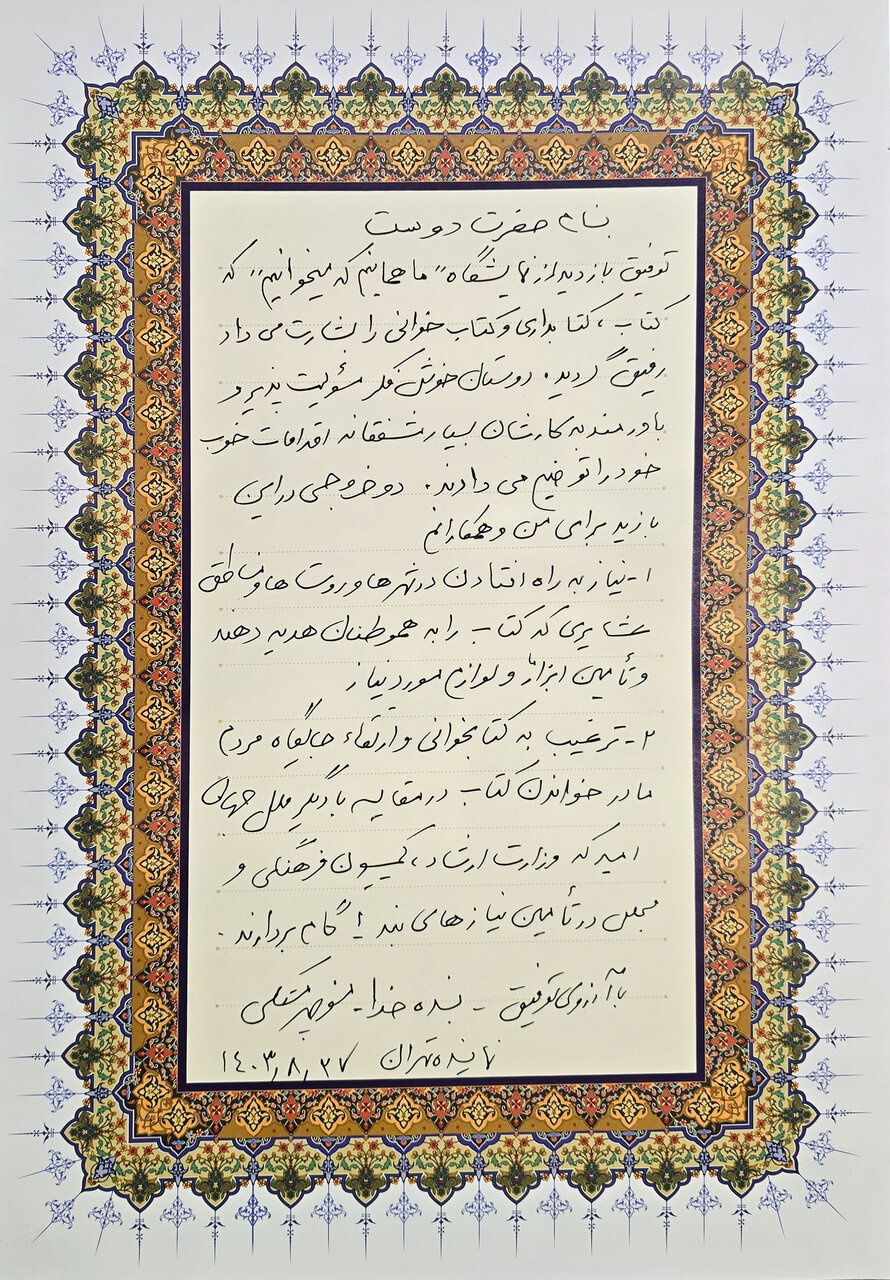 بنام حضرت دوست
توفیق بازدید از نمایشگاه "ما همانیم که میخوانیم" که
کتاب، کتابداری و کتاب خوانی را بشارت می داد
رفیق گردید. دوستان خوش فکر مسئولیت پذیر و
باورمند به کارشان بسیار مشفقانه اقدامات خوب
خود را توضیح می دادند. دو خروجی در این
بازدید برای من و همکارانم
۱- نیاز به راه افتادن در شهرها و روستاها و مناطق
عشایری که کتاب را به هموطنان هدیه دهند
و تأمین ابزار و لوازم مورد نیاز
۲- ترغیب به کتابخوانی و ارتقاء جایگاه مردم
ما در خواندن کتاب در مقایسه با دیگر ملل جهان
امید که وزارت ارشاد، کمیسیون فرهنگی و
مجلس در تأمین نیازهای بند ۱ گام بردارند.
با آرزوی توفیق - بنده خدا - منوچهر متکی
نماینده تهران ۱۴۰۳/۸/۲۷